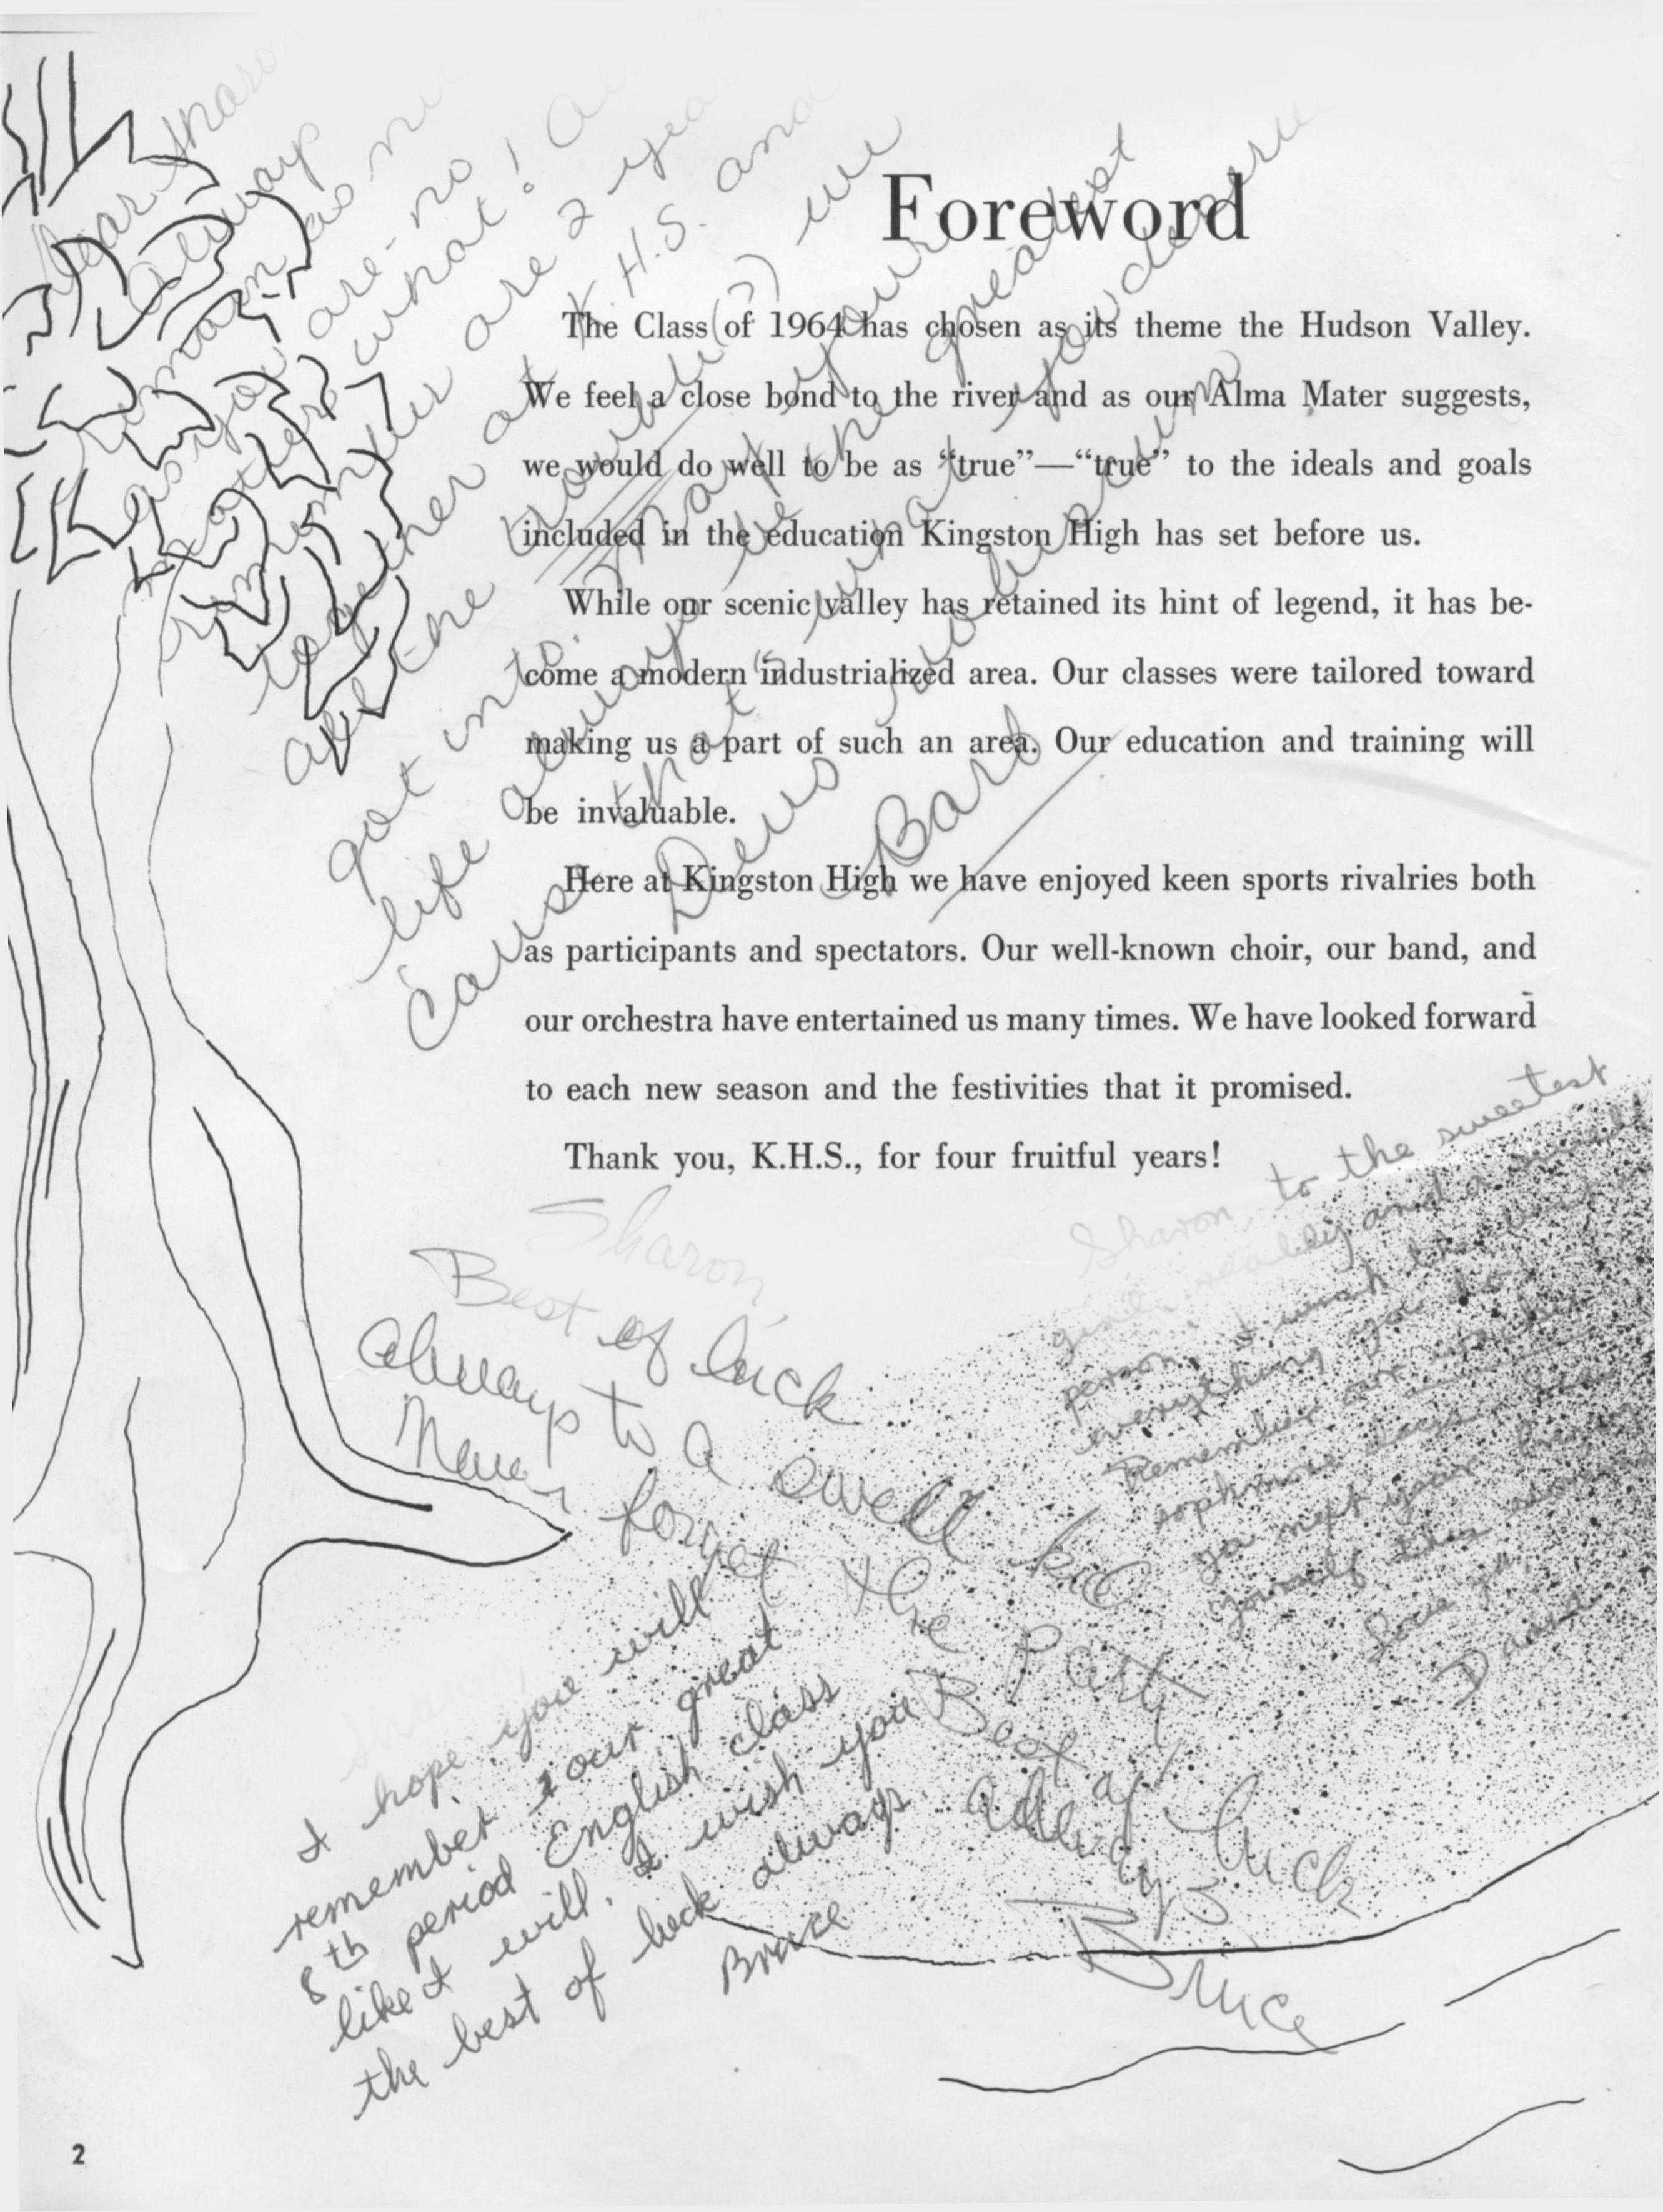 Foreword
The Class of 1964 has chosen as its theme the Hudson Valley.
We feel a close bond to the river and as our Alma Mater suggests,
we would do well to be as “true”—“true” to the ideals and goals
included in the education Kingston High has set before us.
While our scenic valley has retained its hint of legend, it has be-
come a modern industrialized area. Our classes were tailored toward
making us a part of such an area. Our education and training will
be invaluable.
Here at Kingston High we have enjoyed keen sports rivalries both
as participants and spectators. Our well-known choir, our band, and
our orchestra have entertained us many times. We have looked forward
to each new season and the festivities that it promised.
Thank you, K.H.S., for four fruitful years!
Dear Sharon
Always
remain as
as you are - no
matter what!
remember are 2 years
together at K.H.S. and
all the trouble (?) we
got into. May your
life always be the greatest
cause that's what you deserve
Deus vobiscum
Barb
Sharon
Best of luck
Always to a swell kid
Never forget the Party
Best of luck
Always
Bruce
Sharon, to the sweetest
girl really and a swell
person, I wish
everything you do
Remember our
sophmore
yourself
Love ya,
I hope you will
remember our great
8th period English class
like I will. I wish you
the best of luck always.
Bruce
2